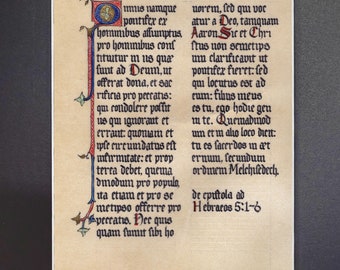 Omnis namque
pontifex ex
hominibus assumptus,
pro hominibus cons
tituitur in iis quæ
sunt ad Deum, ut
offerat dona, et sac
rificia pro peccatis:
qui condolere possit
iis qui ignorant et
errant: quoniam et
ipse circumdatus est
infirmitate: et prop
terea debet, quema
dmodum pro populo,
ita etiam et pro se
metipso offerre pro
peccatis. Nec quis
quam sumit sibi ho
norem, sed qui voc
atur a Deo, tamquam
Aaron. Sic et Chri
stus non semetips
um clarificavit ut
pontifex fieret: sed
qui locutus est ad
eum: filius meus
es tu, ego hodie gen
ui te. Quemadmod
um et in alio loco dicit:
tu es sacerdos in æt
ernum, secundum
ordinem Melchisedech.
de epistola ad
Hebraeos 5:1-6